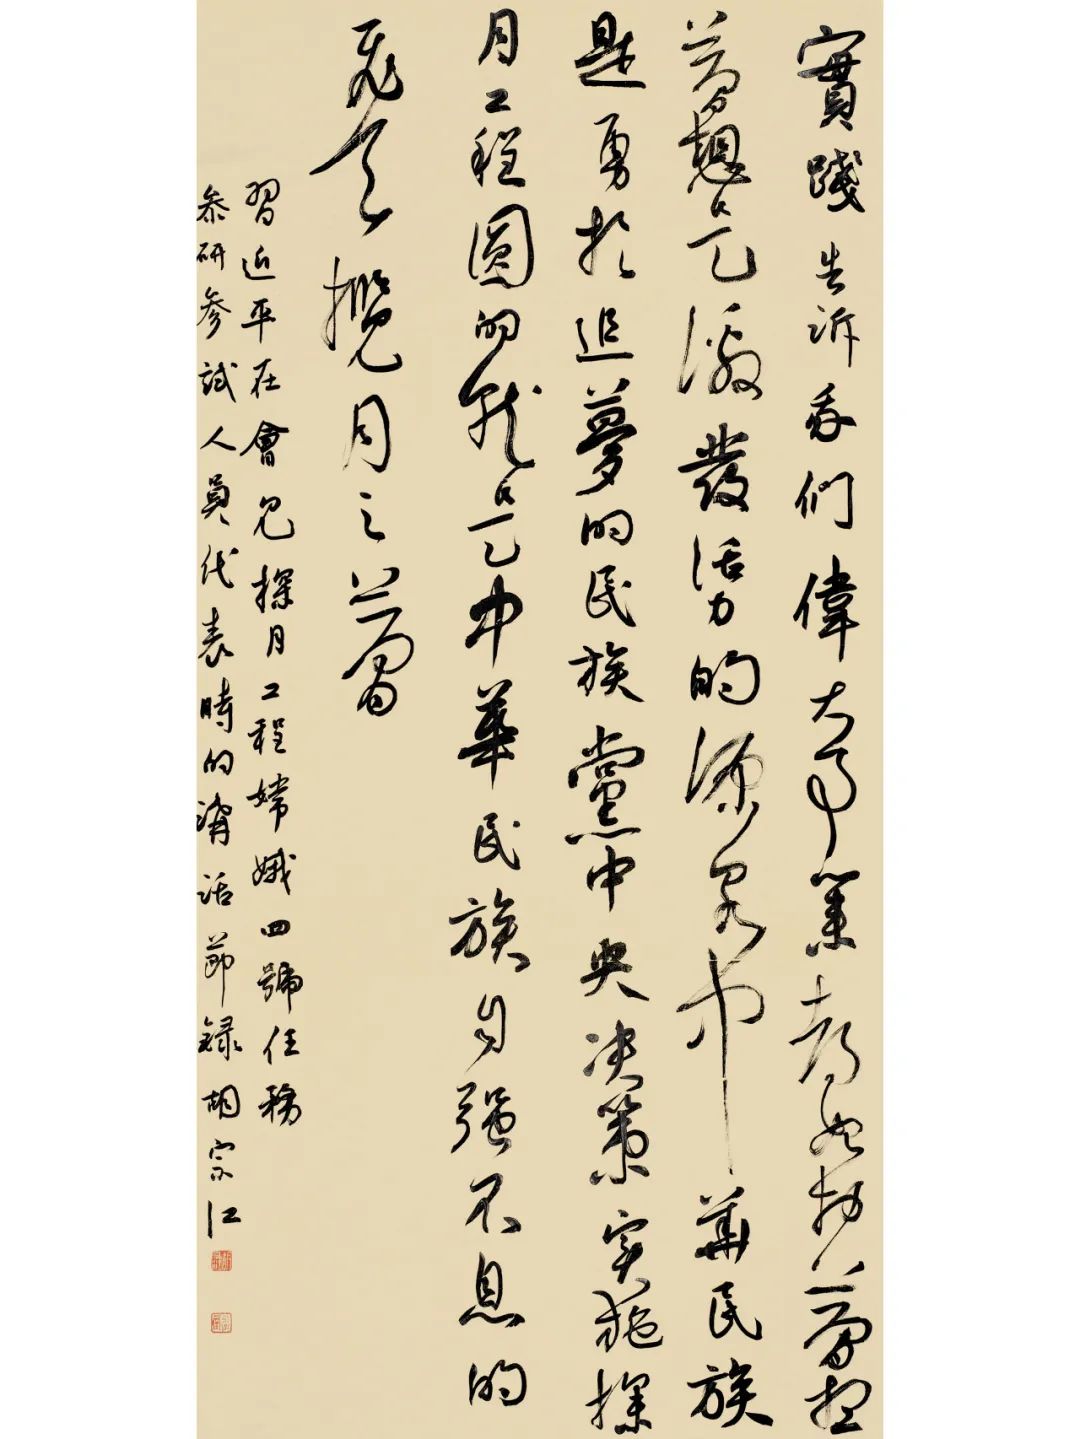 實踐告訴我们偉大事業都始於夢想
夢想是激發活力的源泉中華民族
是勇於追夢的民族黨中央决策實施探
月工程圓的就是中華民族自强不息的
飛天攬月之夢
習近平在會見探月工程嫦娥四號任務
參研參試人員代表時的講話節録胡宗江